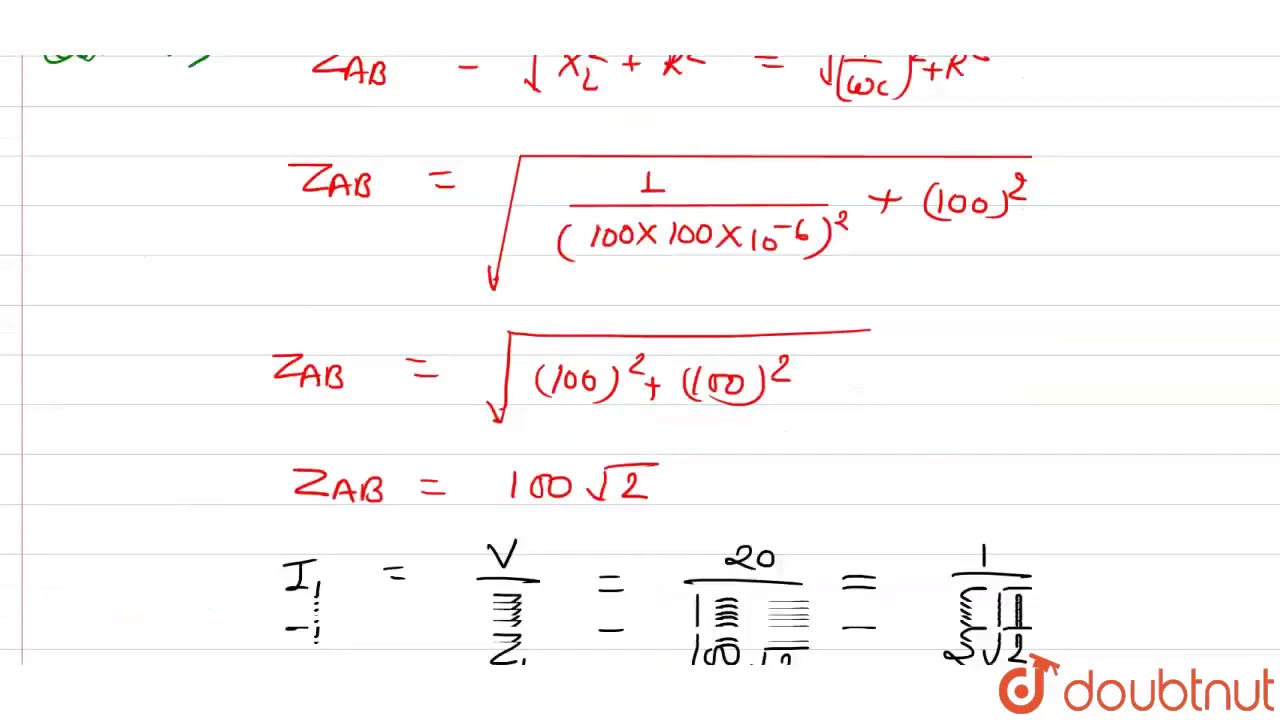 Z_AB = √(X_L² + R²) = √((1/ωc)² + R²)
Z_AB = √(1/(100×100×10⁻⁶)² + (100)²)
Z_AB = √((100)² + (100)²)
Z_AB = 100√2
I₁ = V/Z₁ = 20/100√2 = 1/5√2
doubtnut